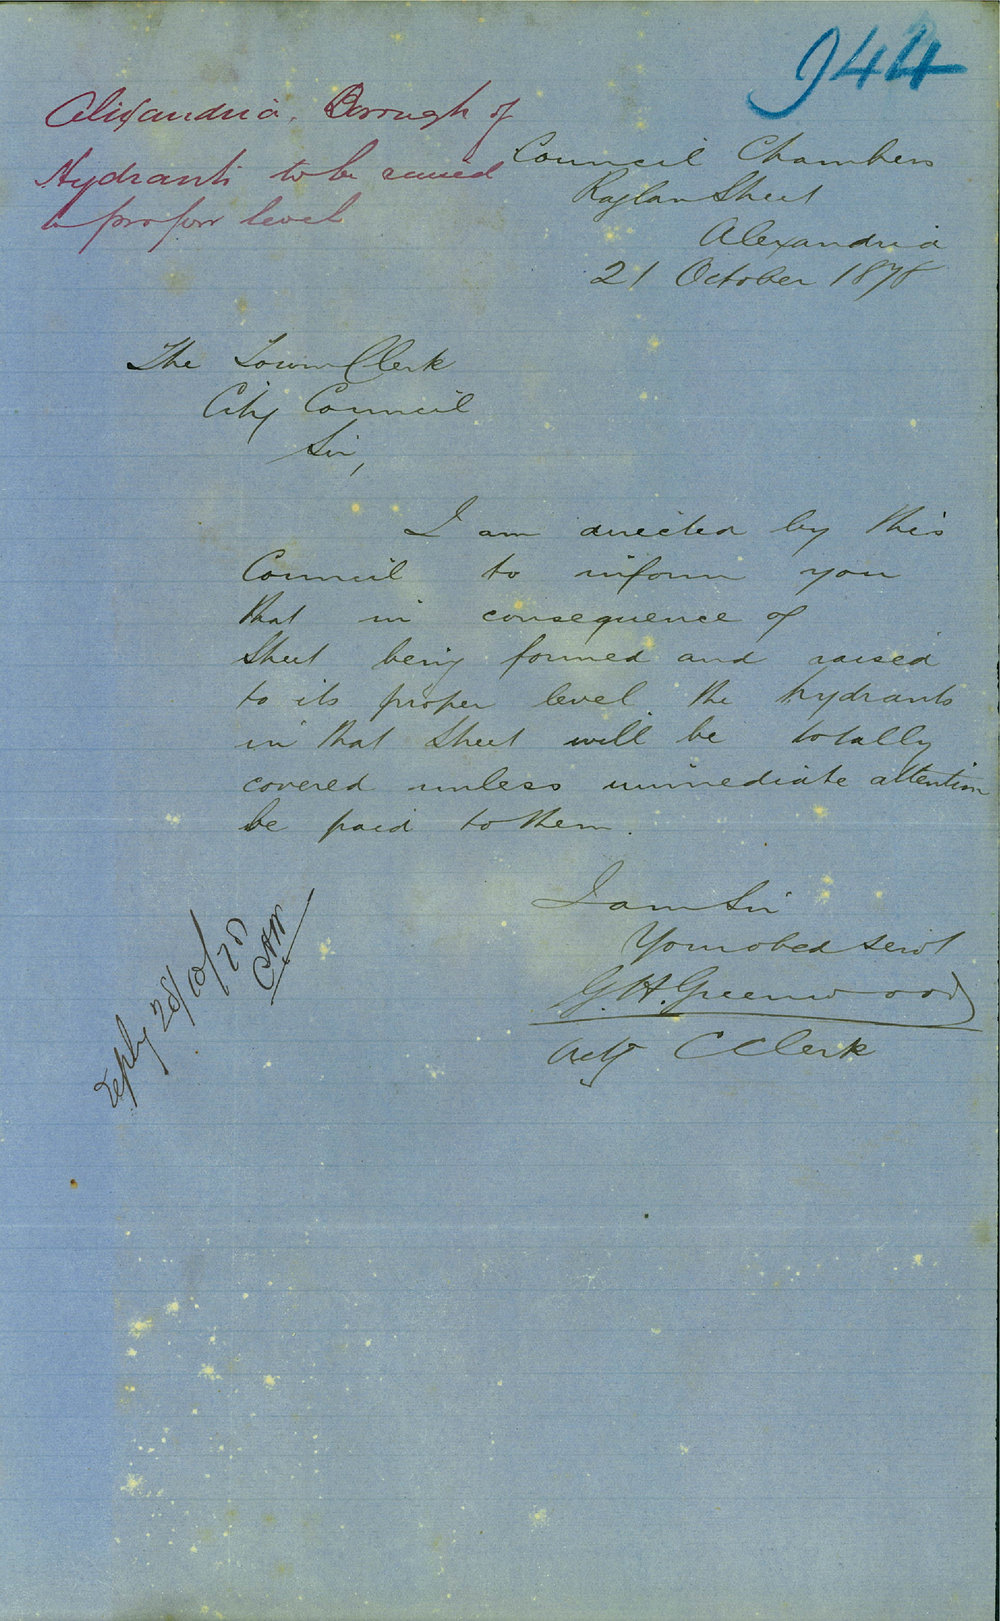 944
Alexandria, Borough of
Hydrants to be raised
to proper level
Council Chambers
Raglan Street
Alexandria
21 October 1878
The Town Clerk
City Council
Sir,
I am directed by this
Council to inform you
that in consequence of
Street being formed and raised
to its proper level the hydrants
in that Street will be totally
covered unless immediate attention
be paid to them.
I am Sir
Your obed servt
G. H. Greenwood
Actg C Clerk
reply 28/10/78